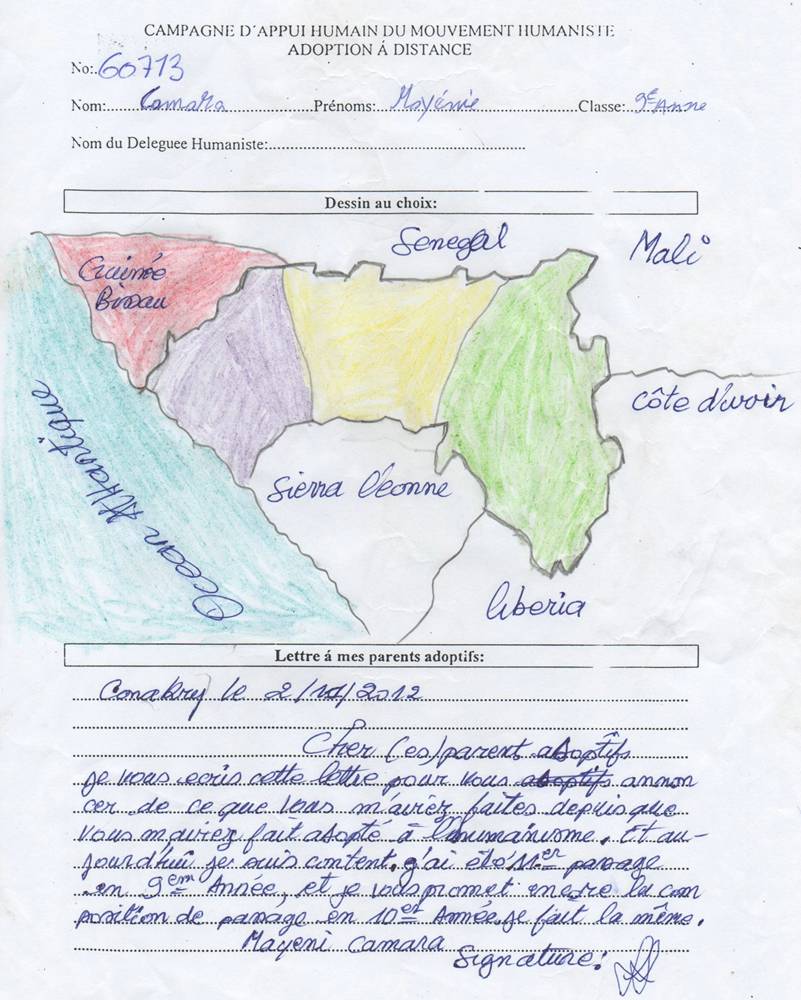 CAMPAGNE D´APPUI HUMAIN DU MOUVEMENT HUMANISTE
ADOPTION Á DISTANCE
No:.60713
Nom:......Camara......Prénoms:...Mayénie......Classe:..9e Anne
Nom du Deleguee Humaniste:......
Dessin au choix:
Senegal
Mali
Guinée
Bissau
Côte d'ivoir
Ocean Atlantique
Sierra léonne
liberia
Lettre á mes parents adoptifs:
Conakry le 2/ /2012
Cher (es) parent adoptifs
je vous ecris cette lettre pour vous annon
cer de ce que vous m'aviez faites depuis que
vous m'aviez fait adopté à l'humanisme. Et au-
jourd'hui je suis content. j'ai été 11er passage
en 9em Année, et je vous promet encore la com
position de passage en 10er Année je fait la même.
Mayeni Camara
Signature: